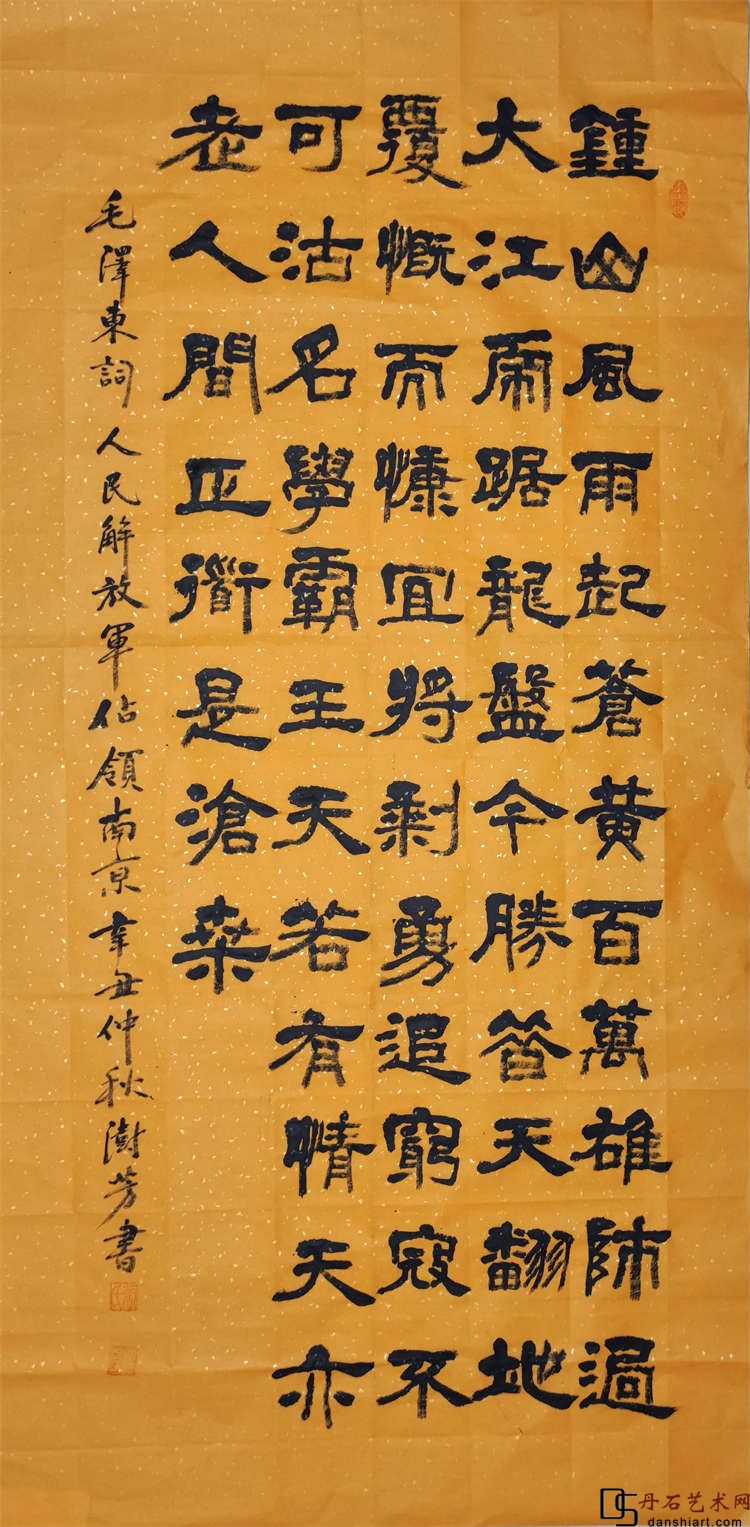 鍾山風雨起蒼黄百萬雄師過
大江虎踞龍盤今勝昔天翻地
覆慨而慷宜将剩勇追窮寇不
可沽名學霸王天若有情天亦
老人間正道是滄桑
毛澤東詞人民解放軍佔領南京辛丑仲秋澍芳書
丹石艺术网
danshiart.com